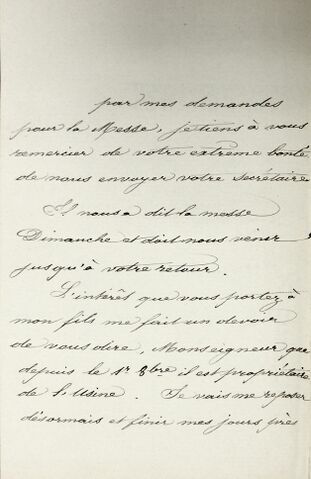 par mes demandes
pour la Messe, je tiens à vous
remercier de votre extrême bonté
de nous envoyer votre secrétaire
Il nous a dit la messe
Dimanche et doit nous venir
jusqu'à votre retour.
L'intérêt que vous portez à
mon fils me fait un devoir
de vous dire, Monseigneur, que
depuis le 1er 8bre il est propriétaire
de l'Usine. Je vais me reposer
désormais et finir mes jours près